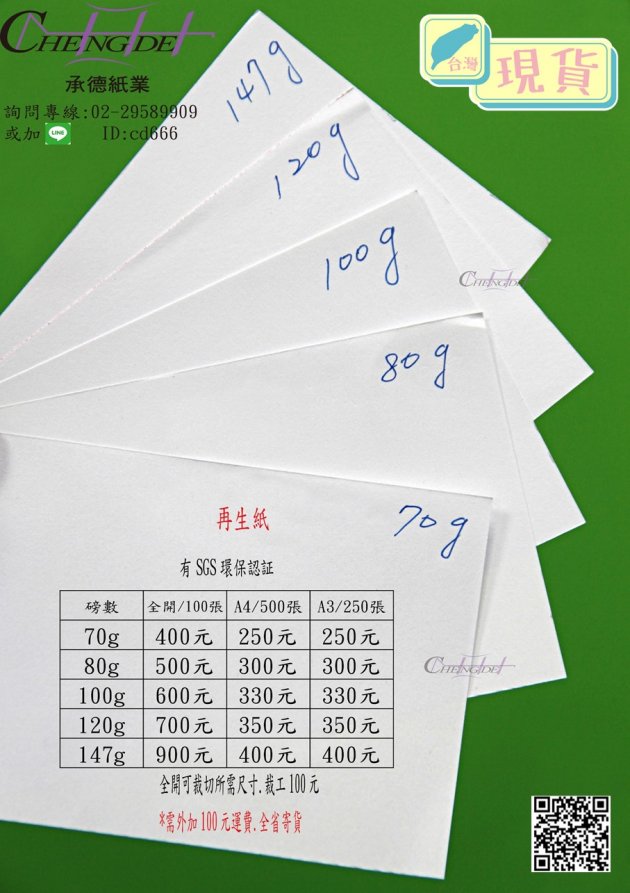 CHENGDE
承德紙業
詢問專線:02-29589909
或加 LINE ID:cd666
台灣
現貨
147g
120g
100g
CHENGDE
80g
70g
再生紙
有SGS環保認証
磅數 全開/100張 A4/500張 A3/250張
70g 400元 250元 250元
80g 500元 300元 300元
CHENGDE
100g 600元 330元 330元
120g 700元 350元 350元
147g 900元 400元 400元
全開可裁切所需尺寸.裁工100元
*需外加100元運費.全省寄貨